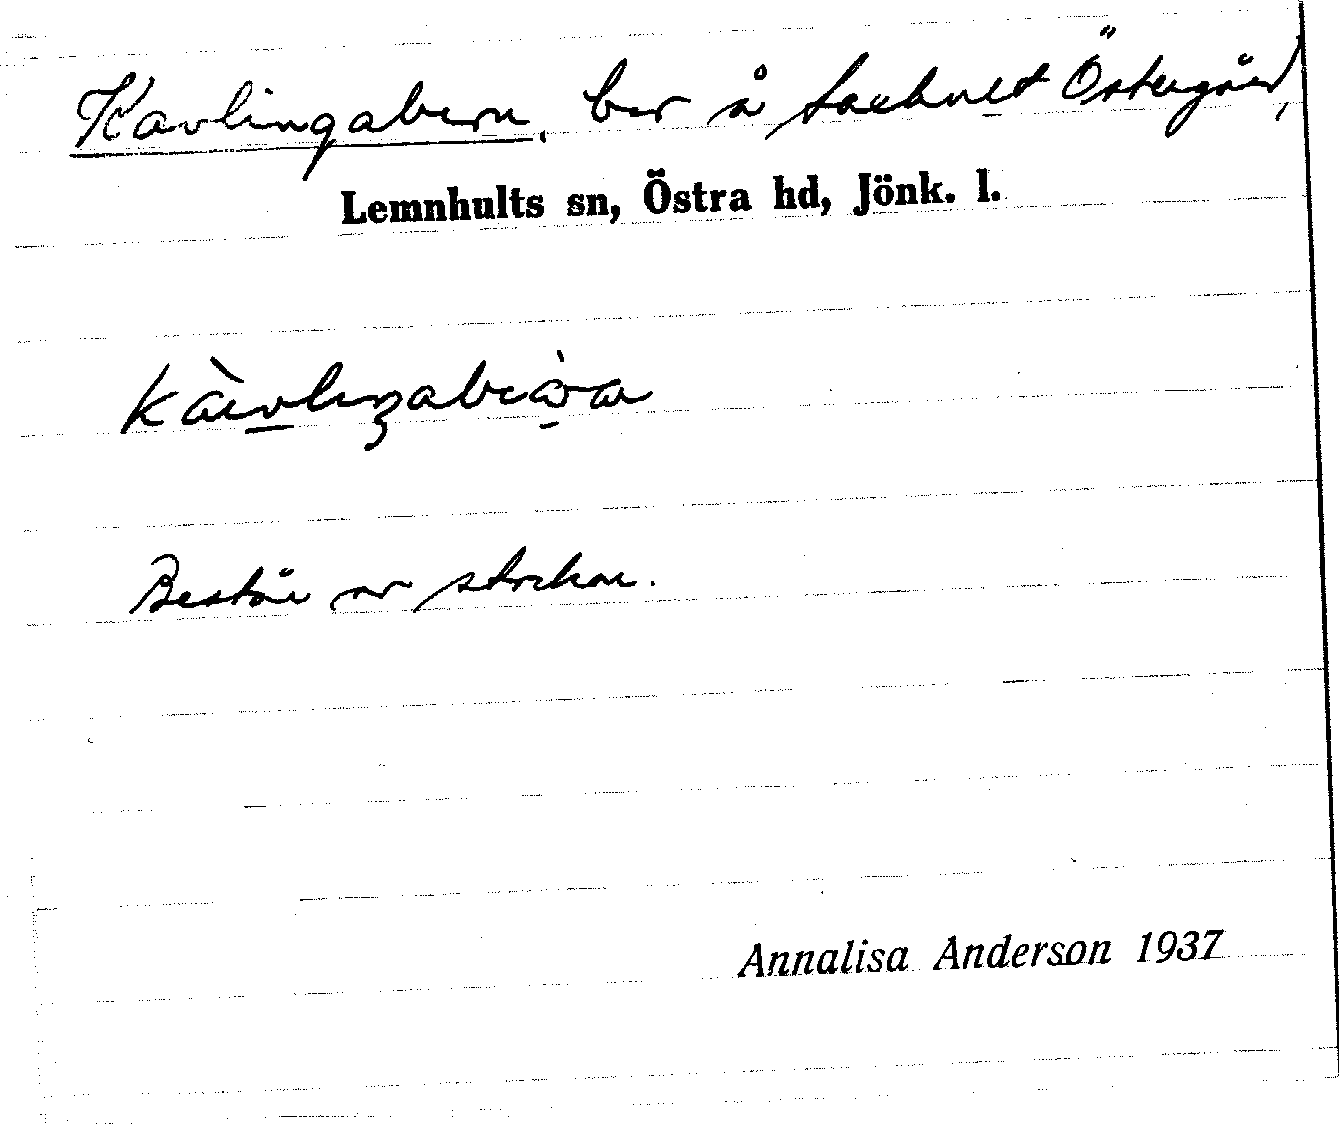 Kavlingabron, bro å Sackult Östergård,
Lemnhults sn, Östra hd, Jönk. l.
Består av stockar.
Annalisa Anderson 1937